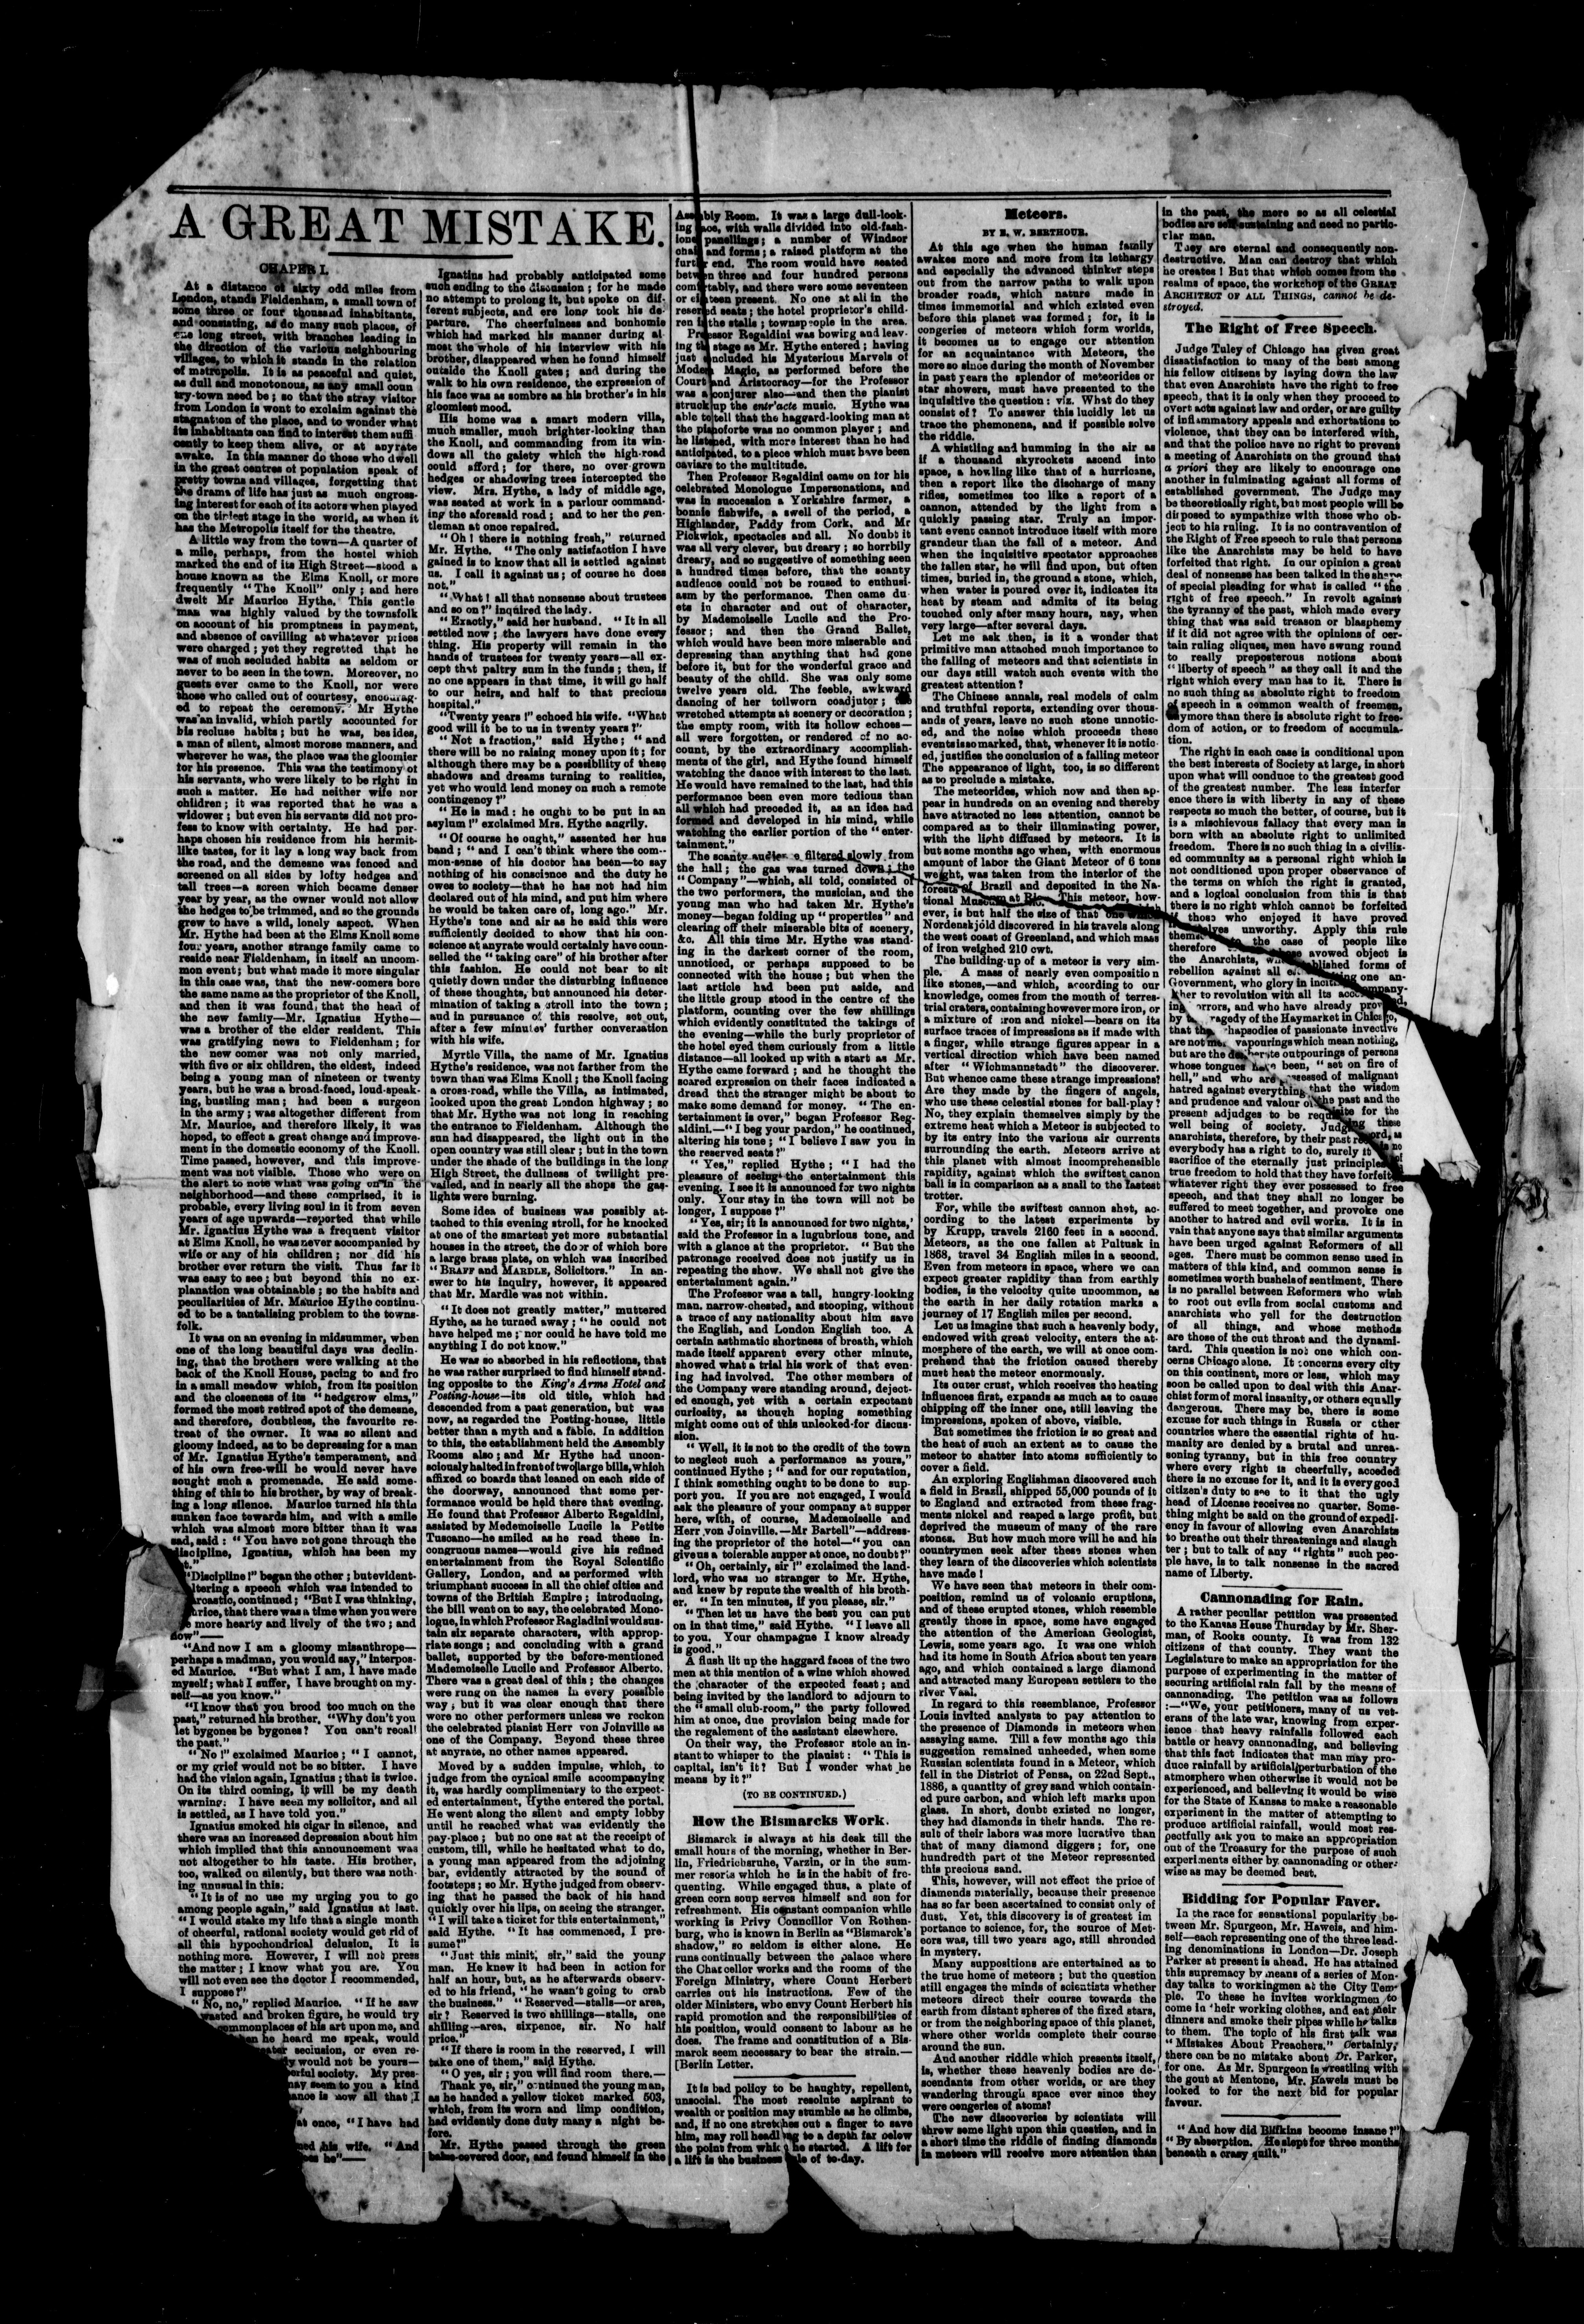 A GREAT MISTAKE.
CHAPER I.
At a distance of sixty odd miles from
London, stands Fieldenham, a small town of
some three or four thousand inhabitants,
and consisting, as do many such places, of
one long street, with branches leading in
the direction of the various neighbouring
villages, to which it stands in the relation
of metropolis. It is as peaceful and quiet,
as dull and monotonous, as any small coun
try-town need be; so that the stray visitor
from London is wont to exclaim against the
stagnation of the place, and to wonder what
its inhabitants can find to interest them suffi
ciently to keep them alive, or at anyrate
awake. In this manner do those who dwell
in the great centres of population speak of
pretty towns and villages, forgetting that
the drama of life has just as much engross-
ing interest for each of its actors when played
on the tiniest stage in the world, as when it
has the Metropolis itself for the theatre.
A little way from the town—A quarter of
a mile, perhaps, from the hostel which
marked the end of its High Street—stood a
house known as the Elms Knoll, or more
frequently "The Knoll" only; and here
dwelt Mr Maurice Hythe. This gentle
man was highly valued by the townsfolk
on account of his promptness in payment,
and absence of cavilling at whatever prices
were charged; yet they regretted that he
was of such secluded habits as seldom or
never to be seen in the town. Moreover, no
guests ever came to the Knoll, nor were
those who called out of courtesy, encourag-
ed to repeat the ceremony. Mr Hythe
was an invalid, which partly accounted for
his recluse habits; but he was, besides,
a man of silent, almost morose manners, and
wherever he was, the place was the gloomier
for his presence. This was the testimony of
his servants, who were likely to be right in
such a matter. He had neither wife nor
children; it was reported that he was a
widower; but even his servants did not pro-
fess to know with certainty. He had per-
haps chosen his residence from his hermit-
like tastes, for it lay a long way back from
the road, and the demesne was fenced and
screened on all sides by lofty hedges and
tall trees—a screen which became denser
year by year, as the owner would not allow
the hedges to be trimmed, and so the grounds
grew to have a wild, lonely aspect. When
Mr. Hythe had been at the Elms Knoll some
four years, another strange family came to
reside near Fieldenham, in itself an uncom-
mon event; but what made it more singular
in this case was, that the new-comers bore
the same name as the proprietor of the Knoll,
and then it was found that the head of
the new family—Mr. Ignatius Hythe—
was a brother of the elder resident. This
was gratifying news to Fieldenham; for
the new comer was not only married,
with five or six children, the eldest, indeed
being a young man of nineteen or twenty
years, but he was a broad-faced, loud-speak-
ing, bustling man; had been a surgeon
in the army; was altogether different from
Mr. Maurice, and therefore likely, it was
hoped, to effect a great change and improve-
ment in the domestic economy of the Knoll.
Time passed, however, and this improve-
ment was not visible. Those who were on
the alert to note what was going on in the
neighborhood—and these comprised, it is
probable, every living soul in it from seven
years of age upwards—reported that while
Mr. Ignatius Hythe was a frequent visitor
at Elms Knoll, he was never accompanied by
wife or any of his children; nor did his
brother ever return the visit. Thus far it
was easy to see; but beyond this no ex-
planation was obtainable; so the habits and
peculiarities of Mr. Maurice Hythe continu-
ed to be a tantalising problem to the towns-
folk.
It was on an evening in midsummer, when
one of the long beautiful days was declin-
ing, that the brothers were walking at the
back of the Knoll House, pacing to and fro
in a small meadow which, from its position
and the closeness of its "hedgrow elms,"
formed the most retired spot of the demesne,
and therefore, doubtless, the favourite re-
treat of the owner. It was so silent and
gloomy indeed, as to be depressing for a man
of Mr. Ignatius Hythe's temperament, and
of his own free-will he would never have
sought such a promenade. He said some-
thing of this to his brother, by way of break-
ing a long silence. Maurice turned his thin
sunken face towards him, and with a smile
which was almost more bitter than it was
sad, said: "You have not gone through the
discipline, Ignatius, which has been my
"Discipline!" began the other; but evident-
ltering a speech which was intended to
rcastic, continued; "But I was thinking,
rice, that there was a time when you were
more hearty and lively of the two; and
now"——
"And now I am a gloomy misanthrope—
perhaps a madman, you would say," interpos-
ed Maurice. "But what I am, I have made
myself; what I suffer, I have brought on my-
self—as you know."
"I know that you brood too much on the
past," returned his brother. "Why don't you
let bygones be bygones? You can't recall
the past."
"No!" exclaimed Maurice; "I cannot,
or my grief would not be so bitter. I have
had the vision again, Ignatius; that is twice.
On its third coming, it will be my death
warning: I have seen my solicitor, and all
is settled, as I have told you."
Ignatius smoked his cigar in silence, and
there was an increased depression about him
which implied that this announcement was
not altogether to his taste. His brother,
too, walked on silently, but there was noth-
ing unusual in this.
"It is of no use my urging you to go
among people again," said Ignatius at last.
"I would stake my life that a single month
of cheerful, rational society would get rid of
all this hypochondrical delusion. It is
nothing more. However, I will not press
the matter; I know what you are. You
will not even see the doctor I recommended,
I suppose?"
"No, no," replied Maurice. "If he saw
wasted and broken figure, he would try
commonplaces of his art upon me, and
he heard me speak, would
seclusion, or even re-
would not be yours—
society. My pres-
may seem to you a kind
is now all that I
at once, "I have had
his wife. "And
he"——
Ignatius had probably anticipated some
such ending to the discussion; for he made
no attempt to prolong it, but spoke on dif-
ferent subjects, and ere long took his de-
parture. The cheerfulness and bonhomie
which had marked his manner during al-
most the whole of his interview with his
brother, disappeared when he found himself
outside the Knoll gates; and during the
walk to his own residence, the expression of
his face was as sombre as his brother's in his
gloomiest mood.
His home was a smart modern villa,
much smaller, much brighter-looking than
the Knoll, and commanding from its win-
dows all the gaiety which the high-road
could afford; for there, no over-grown
hedges or shadowing trees intercepted the
view. Mrs. Hythe, a lady of middle age,
was seated at work in a parlour command-
ing the aforesaid road; and to her the gen-
tleman at once repaired.
"Oh! there is nothing fresh," returned
Mr. Hythe. "The only satisfaction I have
gained is to know that all is settled against
us. I call it against us; of course he does
not."
"What! all that nonsense about trustees
and so on?" inquired the lady.
"Exactly," said her husband. "It in all
settled now; the lawyers have done every
thing. His property will remain in the
hands of trustees for twenty years—all ex-
cept that paltry sum in the funds; then, if
no one appears in that time, it will go half
to our heirs, and half to that precious
hospital."
"Twenty years!" echoed his wife. "What
good will it be to us in twenty years?"
"Not a fraction," said Hythe; "and
there will be no raising money upon it; for
although there may be a possibility of these
shadows and dreams turning to realities,
yet who would lend money on such a remote
contingency?"
"He is mad: he ought to be put in an
asylum!" exclaimed Mrs. Hythe angrily.
"Of course he ought," assented her hus
band; "and I can't think where the com-
mon-sense of his doctor has been—to say
nothing of his conscience and the duty he
owes to society—that he has not had him
declared out of his mind, and put him where
he would be taken care of, long ago." Mr.
Hythe's tone and air as he said this were
sufficiently decided to show that his con-
science at anyrate would certainly have coun-
selled the "taking care" of his brother after
this fashion. He could not bear to sit
quietly down under the disturbing influence
of these thoughts, but announced his deter-
mination of taking a stroll into the town;
and in pursuance of this resolve, set out,
after a few minutes' further conversation
with his wife.
Myrtle Villa, the name of Mr. Ignatius
Hythe's residence, was not farther from the
town than was Elms Knoll; the Knoll facing
a cross-road, while the Villa, as intimated,
looked upon the great London highway; so
that Mr. Hythe was not long in reaching
the entrance to Fieldenham. Although the
sun had disappeared, the light out in the
open country was still clear; but in the town
under the shade of the buildings in the long
High Street, the dullness of twilight pre-
vailed, and in nearly all the shops the gas-
lights were burning.
Some idea of business was possibly at-
tached to this evening stroll, for he knocked
at one of the smartest yet more substantial
houses in the street, the door of which bore
a large brass plate, on which was inscribed
"BRAFF and MARDLE, Solicitors." In an-
swer to his inquiry, however, it appeared
that Mr. Mardle was not within.
"It does not greatly matter," muttered
Hythe, as he turned away; "he could not
have helped me; nor could he have told me
anything I do not know."
He was so absorbed in his reflections, that
he was rather surprised to find himself stand-
ing opposite to the King's Arms Hotel and
Posting-house—its old title, which had
descended from a past generation, but was
now, as regarded the Posting-house, little
better than a myth and a fable. In addition
to this, the establishment held the Assembly
Rooms also; and Mr Hythe had uncon-
sciously halted in front of two large bills, which
affixed to boards that leaned on each side of
the doorway, announced that some per-
formance would be held there that evening.
He found that Professor Alberto Regaldini,
assisted by Medemoiselle Lucile la Petite
Tuscano—he smiled as he read these in-
congruous names—would give his refined
entertainment from the Royal Scientific
Gallery, London, and as performed with
triumphant success in all the chief cities and
towns of the British Empire; introducing,
the bill went on to say, the celebrated Mono-
logue, in which Professor Ragladini would sus-
tain six separate characters, with approp-
riate songs; and concluding with a grand
ballet, supported by the before-mentioned
Mademoiselle Lucile and Professor Alberto.
There was a great deal of this; the changes
were rung on the names in every possible
way; but it was clear enough that there
were no other performers unless we reckon
the celebrated pianist Herr von Joinville as
one of the Company. Beyond these three
at anyrate, no other names appeared.
Moved by a sudden impulse, which, to
judge from the cynical smile accompanying
it, was hardly complimentary to the expect-
ed entertainment, Hythe entered the portal.
He went along the silent and empty lobby
until he reached what was evidently the
pay-place; but no one sat at the receipt of
custom, till, while he hesitated what to do,
a young man appeared from the adjoining
bar, evidently attracted by the sound of
footsteps; so Mr. Hythe judged from observ-
ing that he passed the back of his hand
quickly over his lips, on seeing the stranger.
"I will take a ticket for this entertainment,"
said Hythe. "It has commenced, I pre-
sume?"
"Just this minit, sir," said the young
man. He knew it had been in action for
half an hour, but, as he afterwards observ-
ed to his friend, "he wasn't going to crab
the business." "Reserved—stalls—or area,
sir? Reserved is two shillings—stalls, one
shilling—area, sixpence, sir. No half
price."
"If there is room in the reserved, I will
take one of them," said Hythe.
"O yes, sir; you will find room there.—
Thank ye, sir," continued the young man,
as he handed a yellow ticket marked 503,
which, from its worn and limp condition,
had evidently done duty many a night be-
fore.
Mr. Hythe passed through the green
baize-covered door, and found himself in the
Assembly Room. It was a large dull-look-
ing place, with walls divided into old-fash-
ioned panellings; a number of Windsor
chairs and forms; a raised platform at the
further end. The room would have seated
between three and four hundred persons
comfortably, and there were some seventeen
or eighteen present. No one at all in the
reserved seats; the hotel proprietor's child-
ren in the stalls; townspeople in the area.
Professor Regaldini was bowing and leav-
ing the stage as Mr. Hythe entered; having
just concluded his Mysterious Marvels of
Modern Magic, as performed before the
Court and Aristocracy—for the Professor
was a conjurer also—and then the pianist
struck up the entr'acte music. Hythe was
able to tell that the haggard-looking man at
the pianoforte was no common player; and
he listened, with more interest than he had
anticipated, to a piece which must have been
caviare to the multitude.
Then Professor Regaldini came on for his
celebrated Monologue Impersonations, and
was in succession a Yorkshire farmer, a
bonnie fishwife, a swell of the period, a
Highlander, Paddy from Cork, and Mr
Pickwick, spectacles and all. No doubt it
was all very clever, but dreary; so horribly
dreary, and so suggestive of something seen
a hundred times before, that the scanty
audience could not be roused to enthusi-
asm by the performance. Then came du
ets in character and out of character,
by Mademoiselle Lucile and the Pro-
fessor; and then the Grand Ballet,
which would have been more miserable and
depressing than anything that had gone
before it, but for the wonderful grace and
beauty of the child. She was only some
twelve years old. The feeble, awkward
dancing of her toilworn coadjutor; the
wretched attempts at scenery or decoration;
the empty room, with its hollow echoes—
all were forgotten, or rendered of no ac-
count, by the extraordinary accomplish-
ments of the girl, and Hythe found himself
watching the dance with interest to the last.
He would have remained to the last, had this
performance been even more tedious than
all which had preceded it, as an idea had
formed and developed in his mind, while
watching the earlier portion of the "enter-
tainment."
The scanty audience filtered slowly from
the hall; the gas was turned down; the
"Company"—which, all told, consisted of
the two performers, the musician, and the
young man who had taken Mr. Hythe's
money—began folding up "properties" and
clearing off their miserable bits of scenery,
&c. All this time Mr. Hythe was stand-
ing in the darkest corner of the room,
unnoticed, or perhaps supposed to be
connected with the house; but when the
last article had been put aside, and
the little group stood in the centre of the
platform, counting over the few shillings
which evidently constituted the takings of
the evening—while the burly proprietor of
the hotel eyed them curiously from a little
distance—all looked up with a start as Mr.
Hythe came forward; and he thought the
scared expression on their faces indicated a
dread that the stranger might be about to
make some demand for money. "The en-
tertainment is over," began Professor Reg-
aldini.—"I beg your pardon," he continued,
altering his tone; "I believe I saw you in
the reserved seats?"
"Yes," replied Hythe; "I had the
pleasure of seeing the entertainment this
evening. I see it is announced for two nights
only. Your stay in the town will not be
longer, I suppose?"
"Yes, sir; it is announced for two nights,'
said the Professor in a lugubrious tone, and
with a glance at the proprietor. "But the
patronage received does not justify us in
repeating the show. We shall not give the
entertainment again."
The Professor was a tall, hungry-looking
man, narrow-chested, and stooping, without
a trace of any nationality about him save
the English, and London English too. A
certain asthmatic shortness of breath, which
made itself apparent every other minute,
showed what a trial his work of that even-
ing had involved. The other members of
the Company were standing around, deject-
ed enough, yet with a certain expectant
curiosity, as though hoping something
might come out of this unlooked-for discus-
sion.
"Well, it is not to the credit of the town
to neglect such a performance as yours,"
continued Hythe; "and for our reputation,
I think something ought to be done to sup-
port you. If you are not engaged, I would
ask the pleasure of your company at supper
here, with, of course, Mademoiselle and
Herr von Joinville.—Mr Bartell"—address-
ing the proprietor of the hotel—"you can
give us a tolerable supper at once, no doubt?"
"Oh, certainly, sir!" exclaimed the land-
lord, who was no stranger to Mr. Hythe,
and knew by repute the wealth of his broth-
er. "In ten minutes, if you please, sir."
"Then let us have the best you can put
on in that time," said Hythe. "I leave all
to you. Your champagne I know already
is good."
A flush lit up the haggard faces of the two
men at this mention of a wine which showed
the character of the expected feast; and
being invited by the landlord to adjourn to
the "small club-room," the party followed
him at once, due provision being made for
the regalement of the assistant elsewhere.
On their way, the Professor stole an in-
stant to whisper to the pianist: "This is
capital, isn't it? But I wonder what he
means by it?"
(TO BE CONTINUED.)
How the Bismarcks Work.
Bismarck is always at his desk till the
small hours of the morning, whether in Ber-
lin, Friedrichsruhe, Varzin, or in the sum-
mer resorts which he is in the habit of fre-
quenting. While engaged thus, a plate of
green corn soup serves himself and son for
refreshment. His constant companion while
working is Privy Councillor Von Rothen-
burg, who is known in Berlin as "Bismarck's
shadow," so seldom is either alone. He
runs continually between the palace where
the Chancellor works and the rooms of the
Foreign Ministry, where Count Herbert
carries out his instructions. Few of the
older Ministers, who envy Count Herbert his
rapid promotion and the responsibilities of
his position, would consent to labour as he
does. The frame and constitution of a Bis-
marck seem necessary to bear the strain.—
[Berlin Letter.
It is bad policy to be haughty, repellent,
unsocial. The most resolute aspirant to
wealth or position may stumble as he climbs,
and, if no one stretches out a finger to save
him, may roll headlong to a depth far below
the point from which he started. A lift for
a lift is the business rule of to-day.
Meteors.
BY E. W. BERTHOUR.
At this age when the human family
awakes more and more from its lethargy
and especially the advanced thinker steps
out from the narrow paths to walk upon
broader roads, which nature made in
times immemorial and which existed even
before this planet was formed; for, it is
congeries of meteors which form worlds,
it becomes us to engage our attention
for an acquaintance with Meteors, the
more so since during the month of November
in past years the splendor of meteorides or
star showers, must have presented to the
inquisitive the question: viz. What do they
consist of? To answer this lucidly let us
trace the phemonena, and if possible solve
the riddle.
A whistling and humming in the air as
if a thousand skyrockets ascend into
space, a howling like that of a hurricane,
then a report like the discharge of many
rifles, sometimes too like a report of a
cannon, attended by the light from a
quickly passing star. Truly an impor-
tant event cannot introduce itself with more
grandeur than the fall of a meteor. And
when the inquisitive spectator approaches
the fallen star, he will find upon, but often
times, buried in, the ground a stone, which,
when water is poured over it, indicates its
heat by steam and admits of its being
touched only after many hours, nay, when
very large—after several days.
Let me ask then, is it a wonder that
primitive man attached much importance to
the falling of meteors and that scientists in
our days still watch such events with the
greatest attention?
The Chinese annals, real models of calm
and truthful reports, extending over thous-
ands of years, leave no such stone unnotic-
ed, and the noise which proceeds these
events is so marked, that, whenever it is notic-
ed, justifies the conclusion of a falling meteor
The appearance of light, too, is so different
as to preclude a mistake.
The meteorides, which now and then ap-
pear in hundreds on an evening and thereby
have attracted no less attention, cannot be
compared as to their illuminating power,
with the light diffused by meteors. It is
but some months ago when, with enormous
amount of labor the Giant Meteor of 6 tons
weight, was taken from the interior of the
forests of Brazil and deposited in the Na-
tional Museum at Rio. This meteor, how-
ever, is but half the size of that one which
Nordenskjöld discovered in his travels along
the west coast of Greenland, and which mass
of iron weighed 210 cwt.
The building-up of a meteor is very sim-
ple. A mass of nearly even composition
like stones,—and which, according to our
knowledge, comes from the mouth of terres-
trial craters, containing however more iron, or
a mixture of iron and nickel—bears on its
surface traces of impressions as if made with
a finger, while strange figures appear in a
vertical direction which have been named
after "Wichmannstadt" the discoverer.
But whence came these strange impressions?
Are they made by the fingers of angels,
who use these celestial stones for ball-play?
No, they explain themselves simply by the
extreme heat which a Meteor is subjected to
by its entry into the various air currents
surrounding the earth. Meteors arrive at
this planet with almost incomprehensible
rapidity, against which the swiftest canon
ball is in comparison as a snail to the fastest
trotter.
For, while the swiftest cannon shot, ac-
cording to the latest experiments by
by Krupp, travels 2160 feet in a second.
Meteors, as the one fallen at Pultusk in
1868, travel 34 English miles in a second.
Even from meteors in space, where we can
expect greater rapidity than from earthly
bodies, is the velocity quite uncommon, as
the earth in her daily rotation marks a
journey of 17 English miles per second.
Let us imagine that such a heavenly body,
endowed with great velocity, enters the at-
mosphere of the earth, we will at once com-
prehend that the friction caused thereby
must heat the meteor enormously.
Its outer crust, which receives the heating
influences first, expands as much as to cause
chipping off the inner one, still leaving the
impressions, spoken of above, visible.
But sometimes the friction is so great and
the heat of such an extent as to cause the
meteor to shatter into atoms sufficiently to
cover a field.
An exploring Englishman discovered such
a field in Brazil, shipped 55,000 pounds of it
to England and extracted from these frag-
ments nickel and reaped a large profit, but
deprived the museum of many of the rare
stones. But how much more will he and his
countrymen seek after these stones when
they learn of the discoveries which scientists
have made!
We have seen that meteors in their com-
position, remind us of volcanic eruptions,
and of these erupted stones, which resemble
greatly those in space, some have engaged
the attention of the American Geologist,
Lewis, some years ago. It was one which
had its home in South Africa about ten years
ago, and which contained a large diamond
and attracted many European settlers to the
river Vaal.
In regard to this resemblance, Professor
Louis invited analysts to pay attention to
the presence of Diamonds in meteors when
assaying same. Till a few months ago this
suggestion remained unheeded, when some
Russian scientists found in a Meteor, which
fell in the District of Pensa, on 22nd Sept.,
1886, a quantity of grey sand which contain-
ed pure carbon, and which left marks upon
glass. In short, doubt existed no longer,
they had diamonds in their hands. The re-
sult of their labors was more lucrative than
that of many diamond diggers; for, one
hundredth part of the Meteor represented
this precious sand.
This, however, will not effect the price of
diamonds materially, because their presence
has so far been ascertained to consist only of
dust. Yet, this discovery is of greatest im
portance to science, for, the source of Met-
eors was, till two years ago, still shrouded
in mystery.
Many suppositions are entertained as to
the true home of meteors; but the question
still engages the minds of scientists whether
meteors direct their course towards the
earth from distant spheres of the fixed stars,
or from the neighboring space of this planet,
where other worlds complete their course
around the sun.
And another riddle which presents itself,
is, whether these heavenly bodies are de-
scendants from other worlds, or are they
wandering through space ever since they
were congeries of atoms?
The new discoveries by scientists will
throw some light upon this question, and in
a short time the riddle of finding diamonds
in meteors will receive more attention than
in the past, the more so as all celestial
bodies are self-sustaining and need no partic-
ular man.
They are eternal and consequently non-
destructive. Man can destroy that which
he creates! But that which comes from the
realms of space, the workshop of the GREAT
ARCHITECT OF ALL THINGS, cannot be de-
stroyed.
The Right of Free Speech.
Judge Tuley of Chicago has given great
dissatisfaction to many of the best among
his fellow citizens by laying down the law
that even Anarchists have the right to free
speech, that it is only when they proceed to
overt acts against law and order, or are guilty
of inflammatory appeals and exhortations to
violence, that they can be interfered with,
and that the police have no right to prevent
a meeting of Anarchists on the ground that
a priori they are likely to encourage one
another in fulminating against all forms of
established government. The Judge may
be theoretically right, but most people will be
disposed to sympathize with those who ob-
ject to his ruling. It is no contravention of
the Right of Free speech to rule that persons
like the Anarchists may be held to have
forfeited that right. In our opinion a great
deal of nonsense has been talked in the shape
of special pleading for what is called "the
right of free speech." In revolt against
the tyranny of the past, which made every
thing that was said treason or blasphemy
if it did not agree with the opinions of cer-
tain ruling cliques, men have swung round
to really preposterous notions about
"liberty of speech" as they call it and the
right which every man has to it. There is
no such thing as absolute right to freedom
of speech in a common wealth of freemen,
anymore than there is absolute right to free-
dom of action, or to freedom of accumula-
tion.
The right in each case is conditional upon
the best interests of Society at large, in short
upon what will conduce to the greatest good
of the greatest number. The less interfer
ence there is with liberty in any of these
respects so much the better, of course, but it
is a mischievous fallacy that every man is
born with an absolute right to unlimited
freedom. There is no such thing in a civiliz-
ed community as a personal right which is
not conditioned upon proper observance of
the terms on which the right is granted,
and a logical conclusion from this is that
there is no right which cannot be forfeited
if those who enjoyed it have proved
themselves unworthy. Apply this rule
therefore to the case of people like
the Anarchists, whose avowed object is
rebellion against all established forms of
Government, who glory in inciting one an-
other to revolution with all its accompany-
ing horrors, and who have already proved,
by the tragedy of the Haymarket in Chicago,
that the rhapsodies of passionate invective
are not mere vapourings which mean nothing,
but are the deliberate outpourings of persons
whose tongues have been, "set on fire of
hell," and who are possessed of malignant
hatred against everything that the wisdom
and prudence and valour of the past and the
present adjudges to be requisite for the
well being of society. Judging these
anarchists, therefore, by their past record, as
everybody has a right to do, surely it is no
sacrifice of the eternally just principles of
true freedom to hold that they have forfeited
whatever right they ever possessed to free
speech, and that they shall no longer be
suffered to meet together, and provoke one
another to hatred and evil works. It is in
vain that anyone says that similar arguments
have been urged against Reformers of all
ages. There must be common sense used in
matters of this kind, and common sense is
sometimes worth bushels of sentiment. There
is no parallel between Reformers who wish
to root out evils from social customs and
anarchists who yell for the destruction
of all things, and whose methods
are those of the cut throat and the dynami-
tard. This question is not one which con-
cerns Chicago alone. It concerns every city
on this continent, more or less, which may
soon be called upon to deal with this Anar-
chist form of moral insanity, or others equally
dangerous. There may be, there is some
excuse for such things in Russia or other
countries where the essential rights of hu-
manity are denied by a brutal and unrea-
soning tyranny, but in this free country
where every right is cheerfully, acceded
there is no excuse for it, and it is every good
citizen's duty to see to it that the ugly
head of License receives no quarter. Some-
thing might be said on the ground of expedi-
ency in favour of allowing even Anarchists
to breathe out their threatenings and slaugh
ter; but to talk of any "rights" such peo-
ple have, is to talk nonsense in the sacred
name of Liberty.
Cannonading for Rain.
A rather peculiar petition was presented
to the Kansas House Thursday by Mr. Sher-
man, of Rooks county. It was from 132
citizens of that county. They want the
Legislature to make an appropriation for the
purpose of experimenting in the matter of
securing artificial rain fall by the means of
cannonading. The petition was as follows
:—"We, your petitioners, many of us vet-
erans of the late war, knowing from exper-
ience that heavy rainfalls followed each
battle or heavy cannonading, and believing
that this fact indicates that man may pro-
duce rainfall by artificial perturbation of the
atmosphere when otherwise it would not be
experienced, and believing it would be wise
for the State of Kansas to make a reasonable
experiment in the matter of attempting to
produce artificial rainfall, would most res-
pectfully ask you to make an appropriation
out of the Treasury for the purpose of such
experiments either by cannonading or other-
wise as may be deemed best.
Bidding for Popular Faver.
In the race for sensational popularity be-
tween Mr. Spurgeon, Mr. Haweis, and him-
self—each representing one of the three lead-
ing denominations in London—Dr. Joseph
Parker at present is ahead. He has attained
this supremacy by means of a series of Mon-
day talks to workingmen at the City Tem-
ple. To these he invites workingmen to
come in their working clothes, and eat their
dinners and smoke their pipes while he talks
to them. The topic of his first talk was
"Mistakes About Preachers." Certainly,
there can be no mistake about Dr. Parker,
for one. As Mr. Spurgeon is wrestling with
the gout at Mentone, Mr. Haweis must be
looked to for the next bid for popular
favour.
"And how did Bilfkins become insane?"
"By absorption. He slept for three months
beneath a crazy quilt."